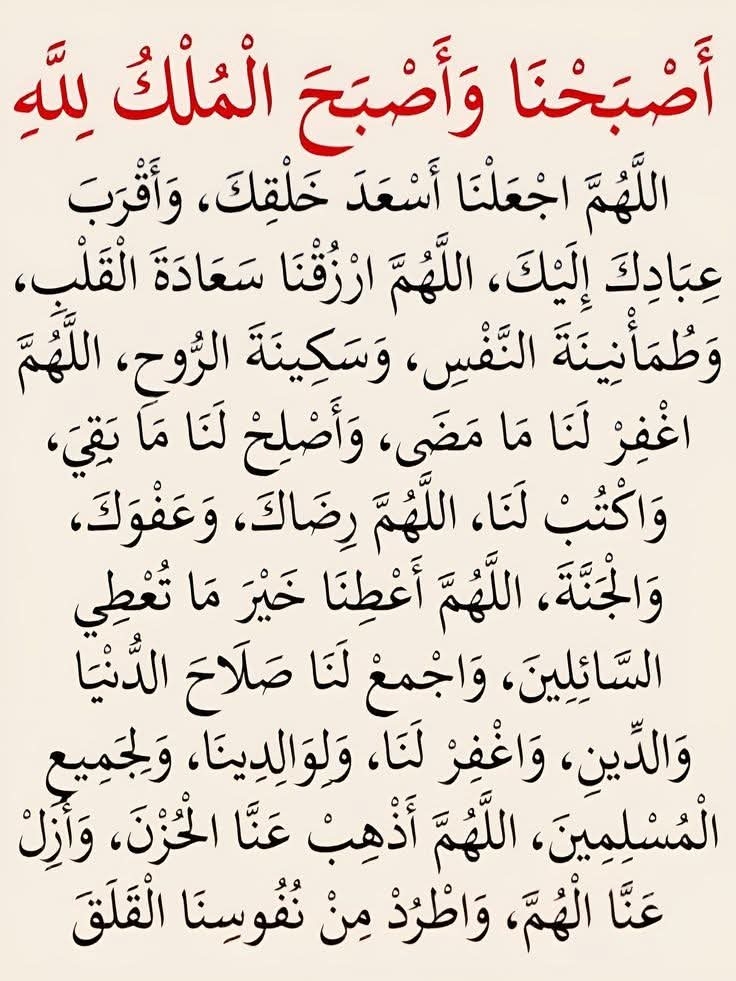 أَصْبَحْنَا وَأَصْبَحَ الْمُلْكُ لِلَّهِ
اللَّهُمَّ اجْعَلْنَا أَسْعَدَ خَلْقِكَ، وَأَقْرَبَ
عِبَادِكَ إِلَيْكَ، اللَّهُمَّ ارْزُقْنَا سَعَادَةَ الْقَلْبِ،
وَطُمَأْنِينَةَ النَّفْسِ، وَسَكِينَةَ الرُّوحِ، اللَّهُمَّ
اغْفِرْ لَنَا مَا مَضَى، وَأَصْلِحْ لَنَا مَا بَقِيَ،
وَاكْتُبْ لَنَا، اللَّهُمَّ رِضَاكَ، وَعَفْوَكَ،
وَالْجَنَّةَ، اللَّهُمَّ أَعْطِنَا خَيْرَ مَا تُعْطِي
السَّائِلِينَ، وَاجْمعْ لَنَا صَلَاحَ الدُّنْيَا
وَالدِّينِ، وَاغْفِرْ لَنَا، وَلِوَالِدِينَا، وَلِجَمِيعِ
الْمُسْلِمِينَ، اللَّهُمَّ أَذْهِبْ عَنَّا الْحُزْنَ، وَأَزِلْ
عَنَّا الْهُمَّ، وَاطْرُدْ مِنْ نُفُوسِنَا الْقَلَقَ